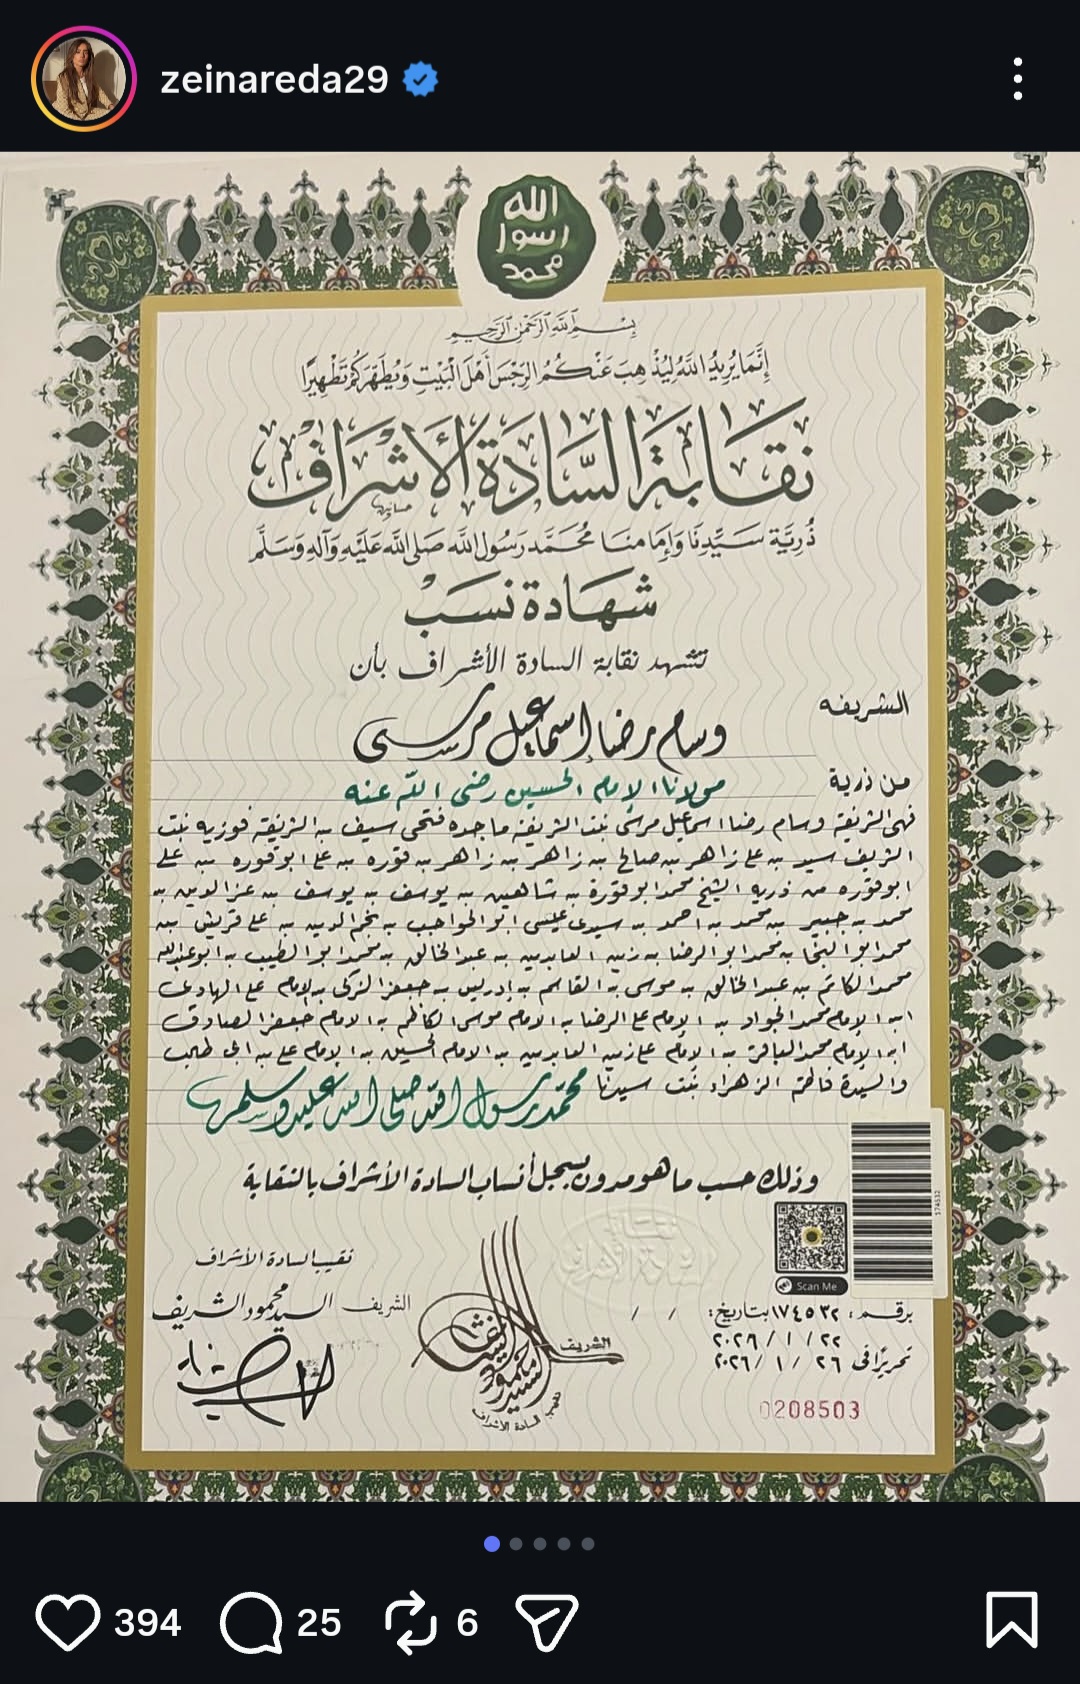 zeinareda29
الله
رسول
محمد
بِسْمِ اللَّهِ الرَّحْمَنِ الرَّحِيمِ
إِنَّمَا يُرِيدُ اللَّهُ لِيُذْهِبَ عَنْكُمُ الرِّجْسَ أَهْلَ الْبَيْتِ وَيُطَهِّرَكُمْ تَطْهِيرًا
نقابة السادة الأشراف
ذرية سيدنا وإمامنا محمد رسول الله صلى الله عليه وآله وسلم
شهادة نسب
تشهد نقابة السادة الأشراف بأن
الشريفه
وسام رضا إسماعيل مرسى
من ذرية
مولانا الإمام الحسين رضى الله عنه
فهى الشريفة وسام رضا اسماعيل مرسى بنت الشريفة ماجده فتحى سيف بن الشريفة فوزيه بنت
الشريف سيد بن على زاهر بن صالح بن زاهر بن زاهر بن قوره بن على ابوقوره بن على
ابوقوره من ذرية الشيخ محمد ابوقورة بن شاهين بن يوسف بن يوسف بن عز الدين بن
محمد بن جبير بن محمد بن احمد بن سيدى عيسى ابو المواهب بن نجم الدين بن على قريش بن
محمد ابو النجا بن محمد ابو الرضا بن زين العابدين بن عبد الخالق بن محمد ابو الطيب بن ابو عبدالله
محمد الكاتم بن عبد الخالق بن موسى بن القاسم بن إدريس بن جعفر الزكى بن الإمام على الهادى
ابن الإمام محمد الجواد بن الإمام على الرضا بن الامام موسى الكاظم بن الامام جعفر الصادق
ابن الإمام محمد الباقر بن الإمام على زين العابدين بن الامام الحسين بن الإمام على بن ابى طالب
والسيدة فاطمة الزهراء بنت سيدنا محمد رسول الله صلى الله عليه وسلم
وذلك حسب ما هو مدون بسجل أنساب السادة الأشراف بالنقابة
174532
Scan Me
نقابة
السادة الأشراف
نقيب السادة الأشراف
الشريف السيد محمود الشريف
الشريف
السيد محمود الشريف
نقيب السادة الأشراف
برقم: ١٧٤٥٣٢ بتاريخ: / /
٢٠٢٦/١/٢٢
تحريرًا فى ٢٦ /١ /٢٠٢٦
0208503
394 25 6